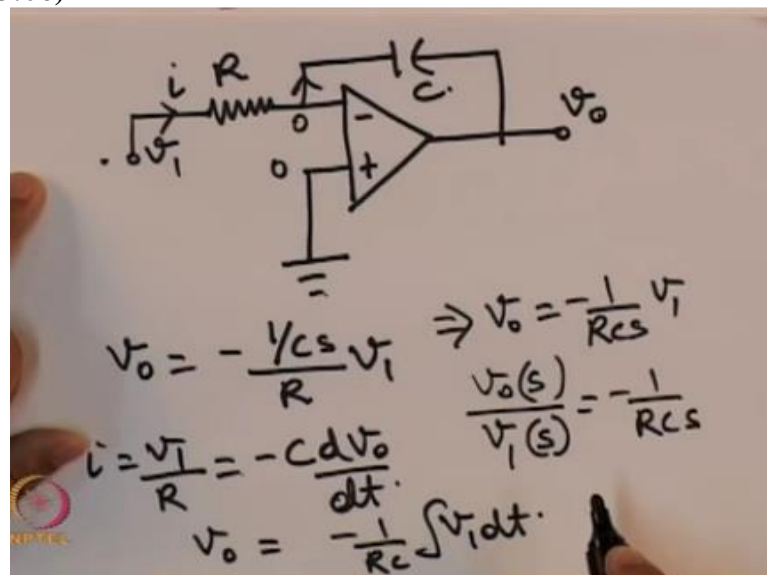 i R
C.
. v₁
0
0
-
+
v₀
v₀ = - (1/Cs)/R v₁
⇒ v₀ = - 1/RCs v₁
v₀(s)/v₁(s) = - 1/RCs
i = v₁/R = -C dv₀/dt.
v₀ = - 1/RC ∫v₁dt.
NPTEL